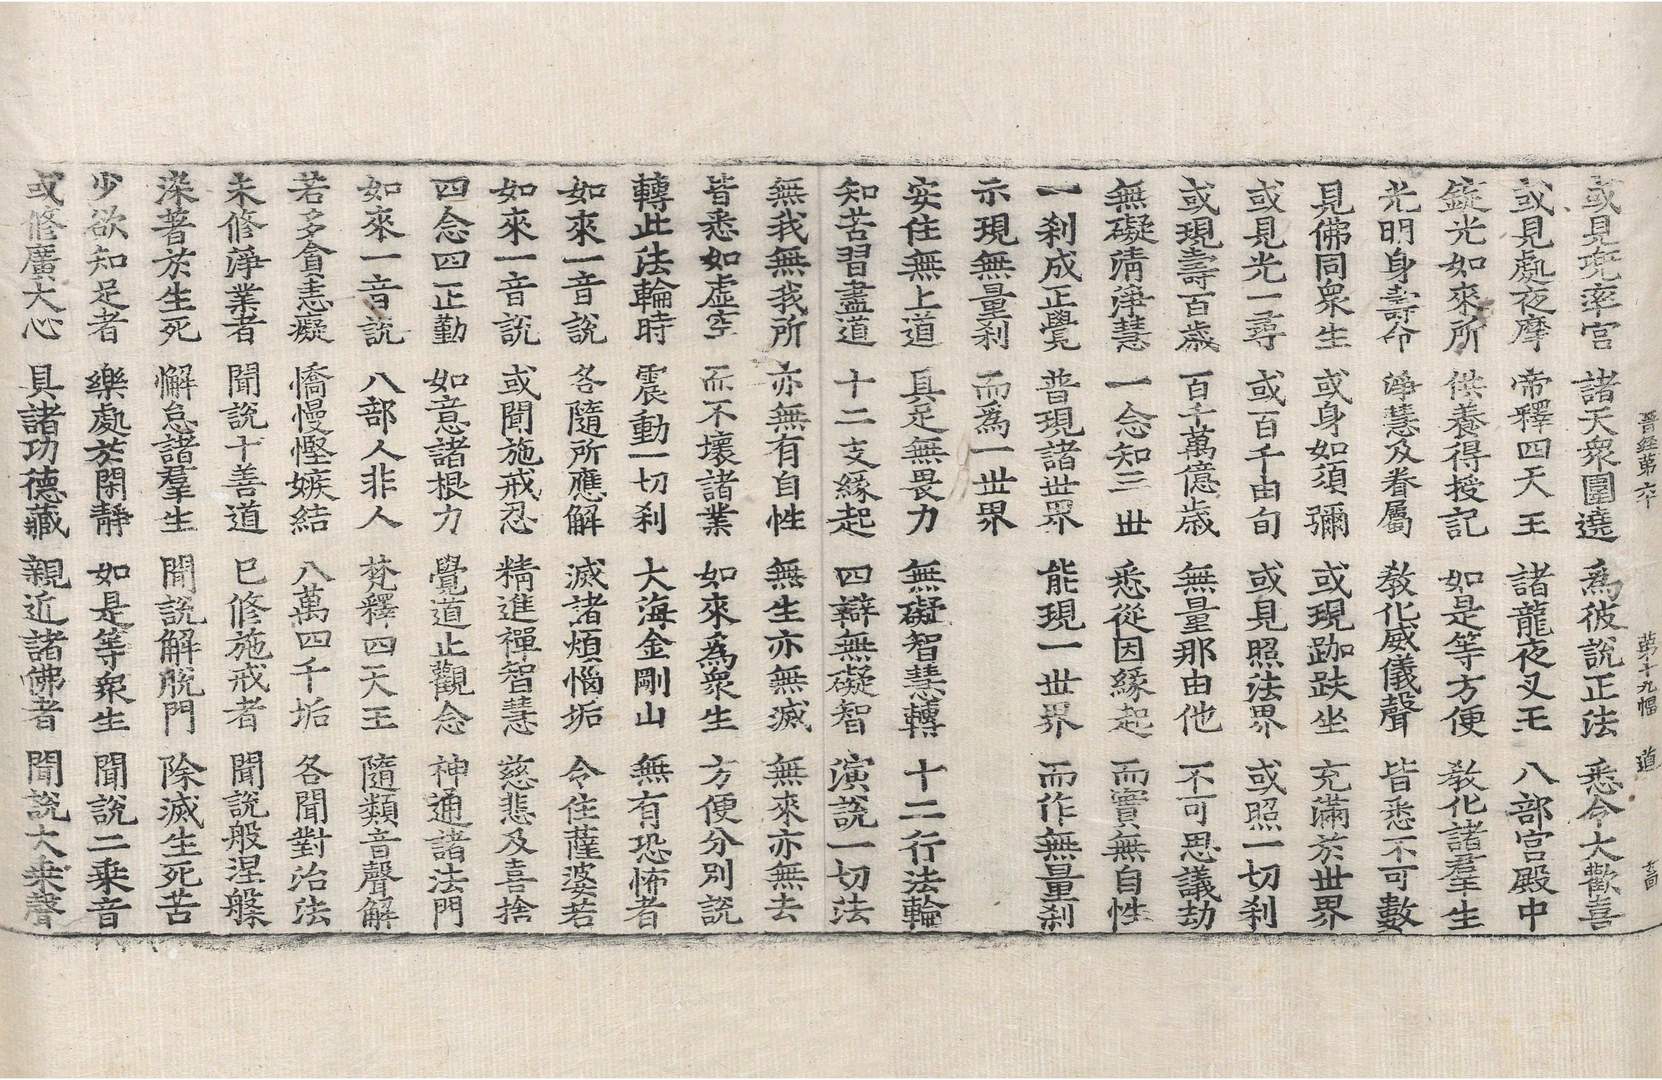 晉經第六十　第十九幅　道　玄回
或見兜率宮　諸天衆圍遶　為彼說正法　悉令大歡喜
或見處夜摩　帝釋四天王　諸龍夜叉王　八部宮殿中
錠光如來所　供養得授記　如是等方便　敎化諸羣生
光明身壽命　淨慧及眷屬　敎化威儀聲　皆悉不可數
見佛同衆生　或身如須彌　或現跏趺坐　充滿於世界
或見光一尋　或百千由旬　或見照法界　或照一切刹
或現壽百歲　百千萬億歲　無量那由他　不可思議劫
無礙淸淨慧　一念知三世　悉從因緣起　而實無自性
一刹成正覺　普現諸世界　能現一世界　而作無量刹
示現無量刹　而為一世界
安住無上道　具足無畏力　無礙智慧轉　十二行法輪
知苦習盡道　十二支緣起　四辯無礙智　演說一切法
無我無我所　亦無有自性　無生亦無滅　無來亦無去
皆悉如虛空　而不壞諸業　如來為衆生　方便分別說
轉此法輪時　震動一切刹　大海金剛山　無有恐怖者
如來一音說　各隨所應解　滅諸煩惱垢　令住薩婆若
如來一音說　或聞施戒忍　精進禪智慧　慈悲及喜捨
四念四正勤　如意諸根力　覺道止觀念　神通諸法門
如來一音說　八部人非人　梵釋四天王　隨類音聲解
若多貪恚癡　憍慢慳嫉結　八萬四千垢　各聞對治法
未修淨業者　聞說十善道　已修施戒者　聞說般涅槃
染著於生死　懈怠諸羣生　聞說解脫門　除滅生死苦
少欲知足者　樂處於閑靜　如是等衆生　聞說二乘音
或修廣大心　具諸功德藏　親近諸佛者　聞說大乘聲